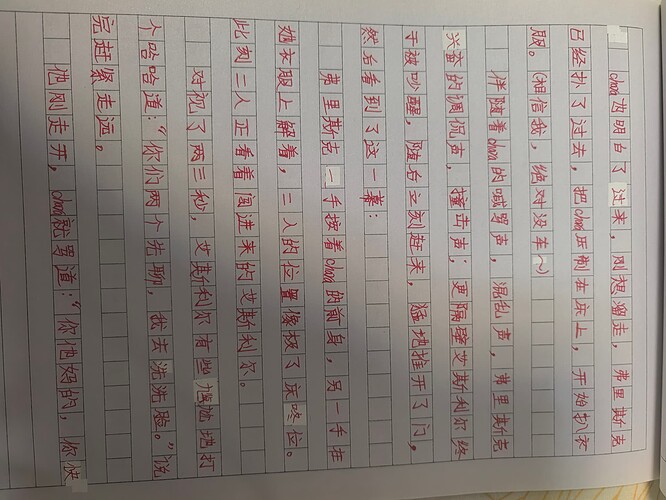 chara明白了过来，刚想溜走，弗里斯克
已经扑了过去，把chara压制在床上，开始扒衣
服。（相信我，绝对没车~）
伴随着chara的喊骂声，混乱声，弗里斯克
兴奋的调侃声，撞击声；更隔壁艾斯利尔终
于被吵醒，随后立刻赶来，猛地推开了门，
然后看到了这一幕：
弗里斯克一手按着chara的前身，另一手在
她衣服上解着，二人的位置像极了床咚位。
此刻二人正看着闯进来的艾斯利尔。
对视了两三秒，艾斯利尔有些尴尬地打
个哈哈道：“你们两个先聊，我去洗洗脸。”说
完赶紧走远。
他刚走开，chara就骂道：“你他妈的，你快